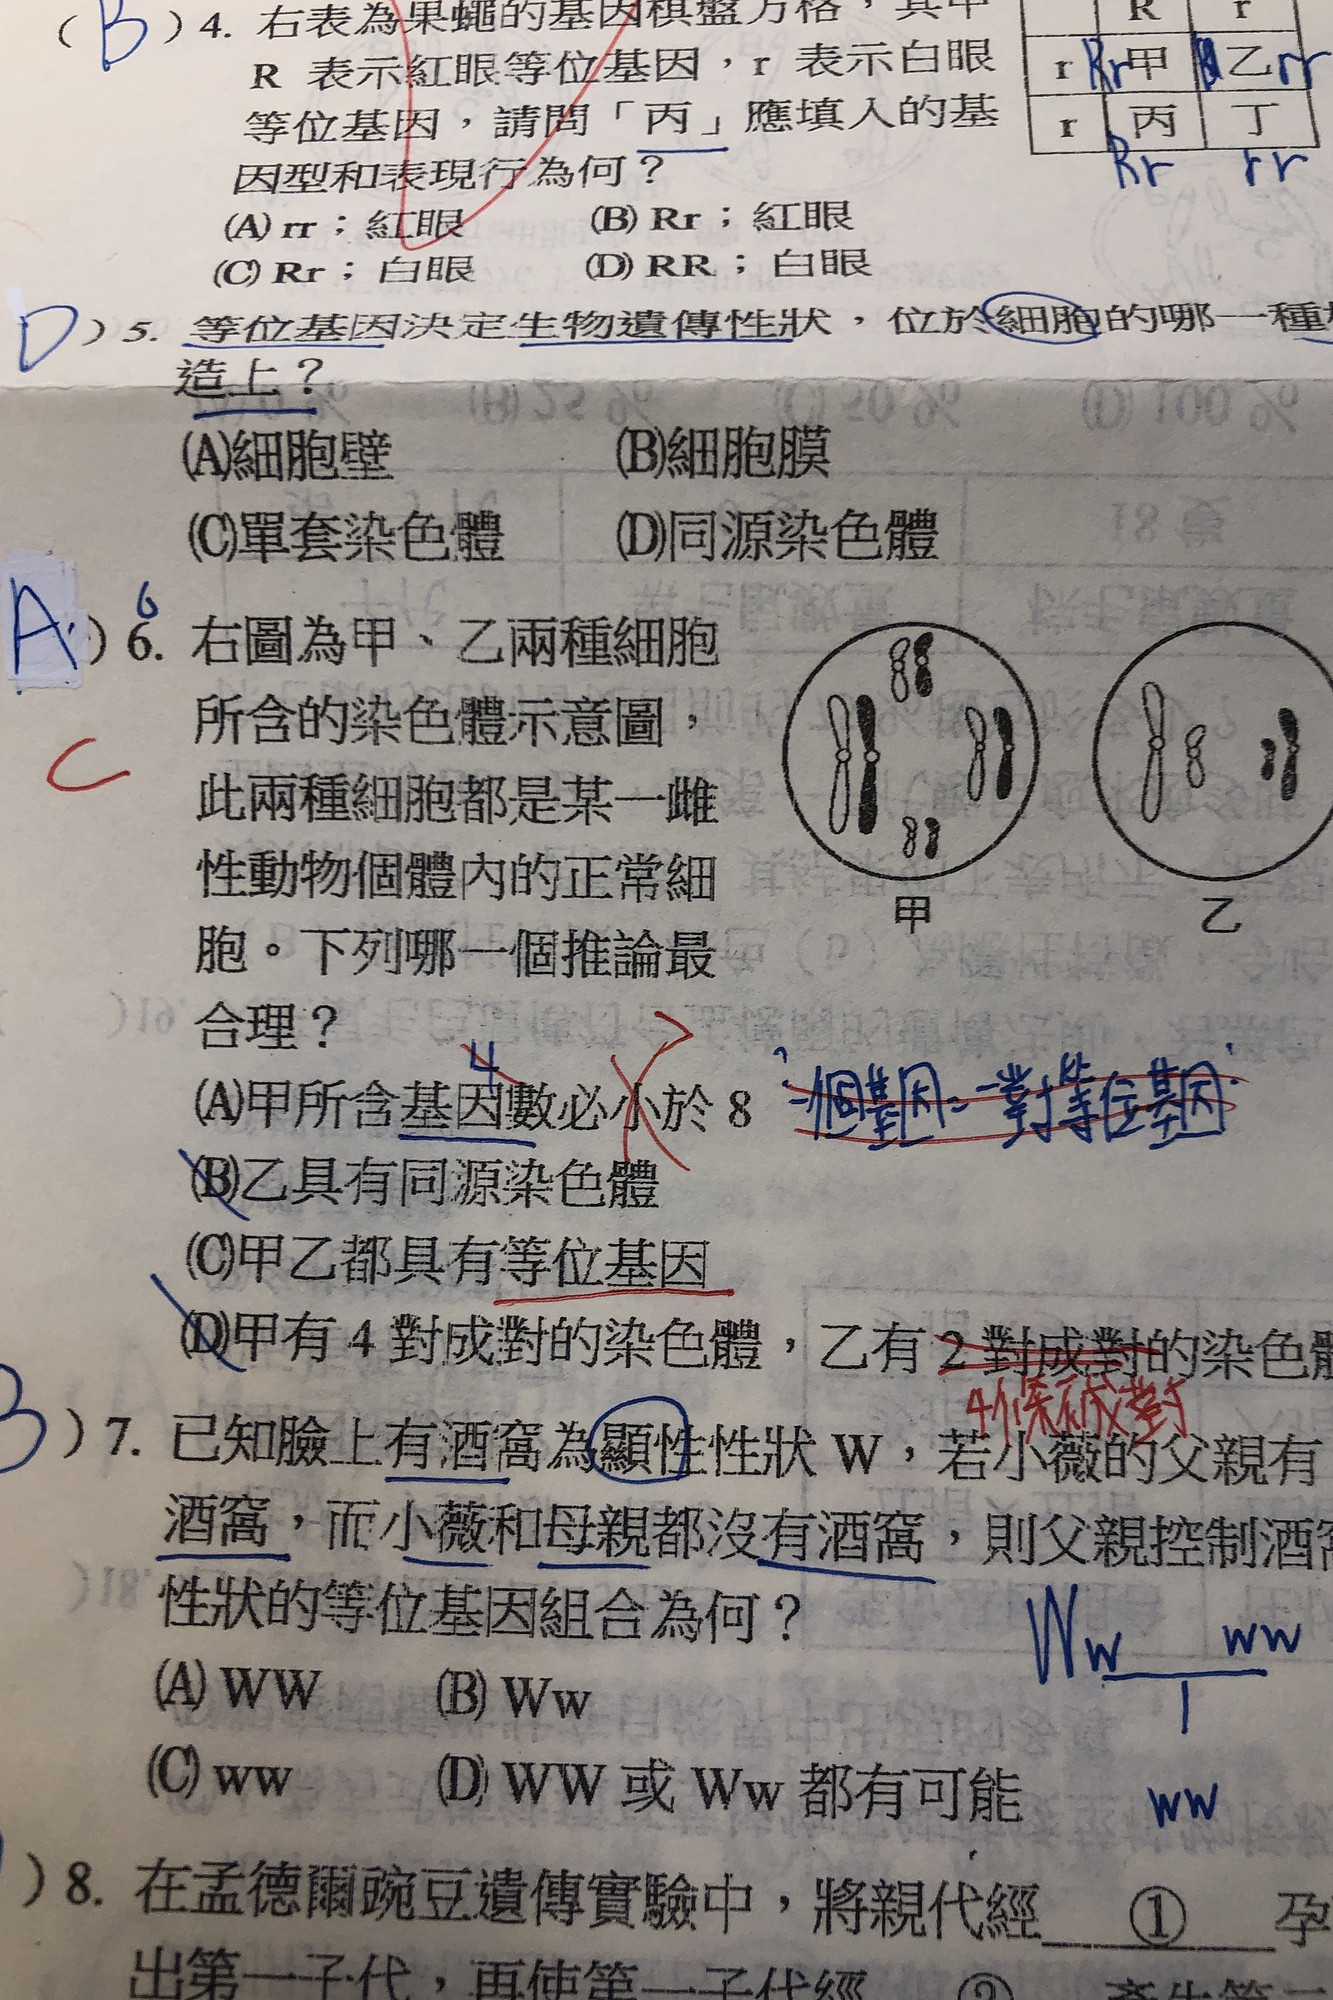 (B)4. 右表為果蠅的基因棋盤方格，其中
R 表示紅眼等位基因，r 表示白眼
等位基因，請問「丙」應填入的基
因型和表現行為何？
(A) rr；紅眼 (B) Rr；紅眼
(C) Rr；白眼 (D) RR；白眼
R r
r Rr甲 乙rr
r 丙 丁
Rr rr
D)5. 等位基因決定生物遺傳性狀，位於細胞的哪一種
造上？
(A)細胞壁 (B)細胞膜
(C)單套染色體 (D)同源染色體
A.)6. 右圖為甲、乙兩種細胞
6
C
所含的染色體示意圖，
此兩種細胞都是某一雌
性動物個體內的正常細
胞。下列哪一個推論最
合理？
甲 乙
4
(A)甲所含基因數必小於 8 一個基因=一對等位基因
(B)乙具有同源染色體
(C)甲乙都具有等位基因
(D)甲有 4 對成對的染色體，乙有 2 對成對的染色體
4條不成對
B)7. 已知臉上有酒窩為顯性性狀 W，若小薇的父親有
酒窩，而小薇和母親都沒有酒窩，則父親控制酒窩
性狀的等位基因組合為何？
Ww ww
(A) WW (B) Ww
(C) ww (D) WW 或 Ww 都有可能
ww
)8. 在孟德爾豌豆遺傳實驗中，將親代經 ① 孕
出第一子代，再使第一子代經 ② 產生第二